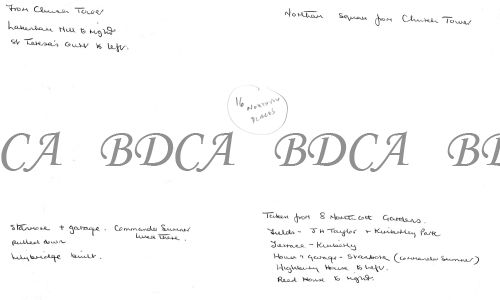 From Church Tower
Lakenham Hill to right
St Teresa's Court to left.
Northam Square from Church Tower
16 NORTHAM
PLACES
BDCA BDCA BDCA BD
+ garage. Commander Sumner
lived there.
pulled down
built.
Taken from 8 Northcott Gardens.
Fields - J H Taylor + Kimberley Park
Terrace - Kimberley
House + Garage - (Commander Sumner)
Highbury House to left.
Road House to right.